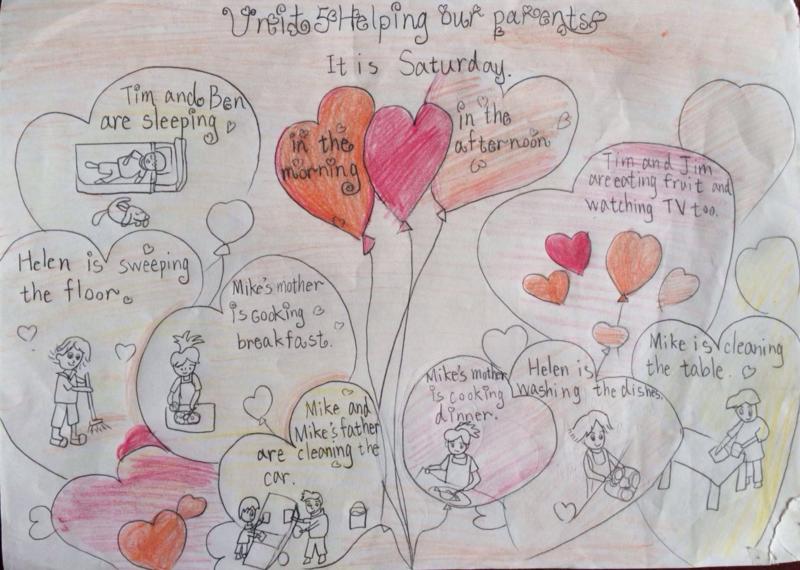 Unit 5 Helping our parents
It is Saturday.
in the
morning
in the
afternoon
Tim and Ben
are sleeping
Helen is sweeping
the floor.
Mike's mother
is cooking
breakfast.
Mike and
Mike's father
are cleaning the
car.
Tim and Jim
are eating fruit and
watching TV too.
Mike's mother
is cooking
dinner.
Helen is
washing the dishes.
Mike is cleaning
the table.